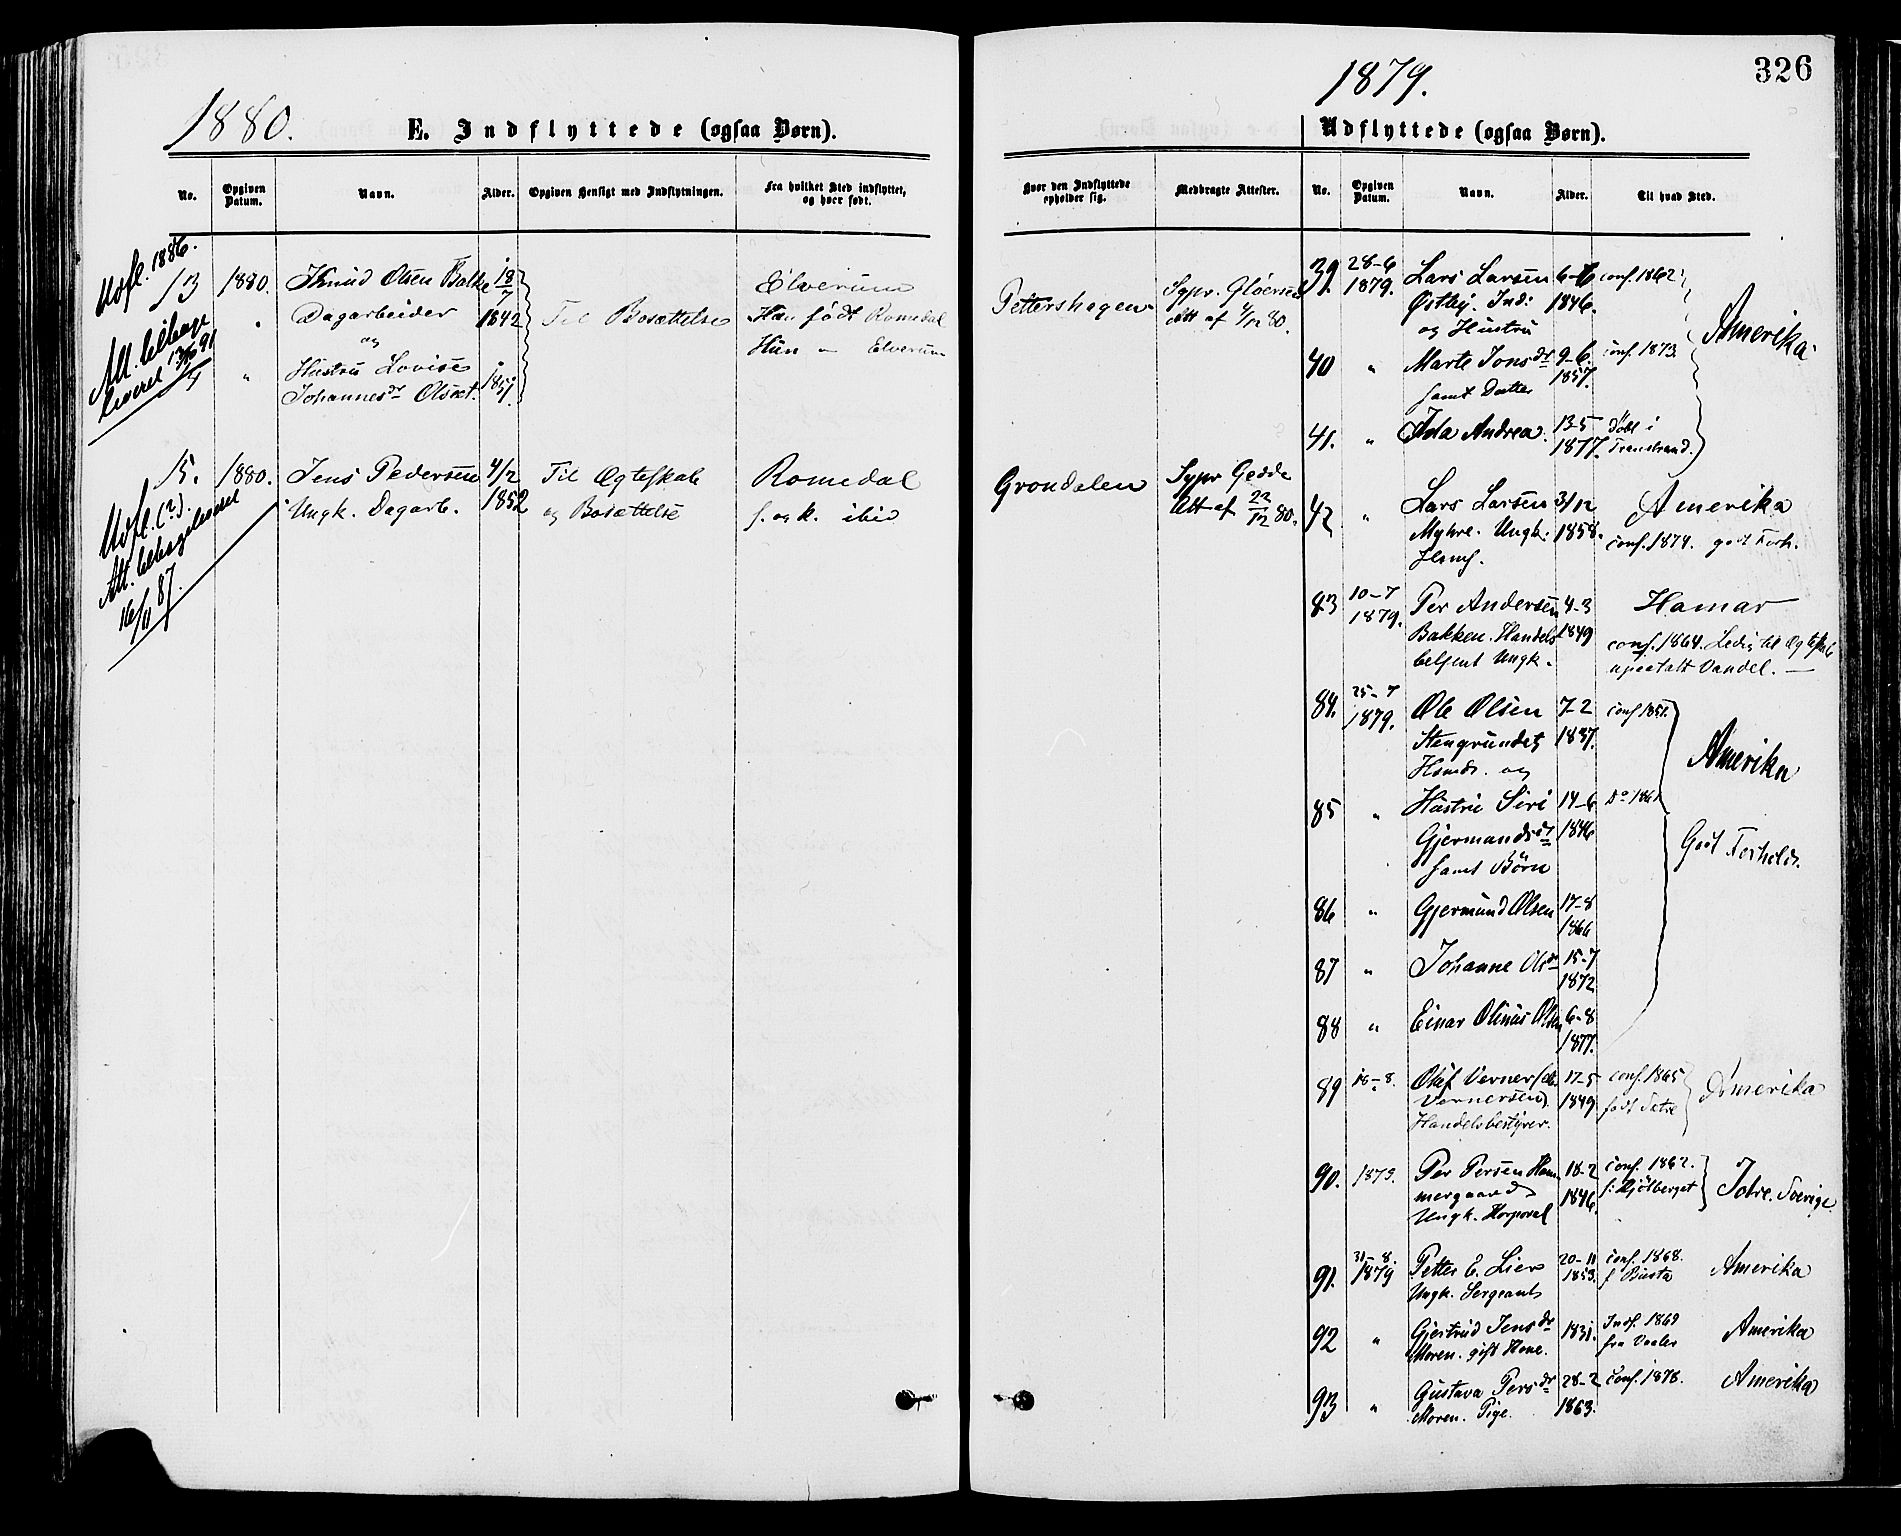 1880.
E. Indflyttede (ogsaa Børn).
No.
Opgiven Datum.
Navn.
Alder.
Opgiven Hensigt med Indflytningen.
Fra hvilket Sted indflyttet, og hvor født.
Udfl. 1886.
13
1880.
Knud Olsen Balke
18/7
Elverum
"
Dagarbeider
1842
Til Bosættelse
Han født Romedal
og
Hun — Elverum
"
Hustru Lovise
Johannesdr
1851.
Att.
leveret
15.
1880.
Jens Pedersen
4/2
Til Ægteskab
Romedal
Ungk. Dagarb.
1852
og Bosættelse
f. og k. ibid
Udfl.
Att.
16/11 87.
326
1879.
Udflyttede (ogsaa Børn).
Hvor den Indflyttede opholder sig.
Medbragte Attester.
No.
Opgiven Datum.
Navn.
Alder.
Til hvad Sted.
Pettershagen
Sgpr. Gløersen
Att af 4/12 80.
Grondalen
Sgpr Gedde
Att af 22/12 80.
39.
28-6
1879.
Lars Larsen
6-6
conf. 1862
Østby. Ind:
1846.
og Hustru
Amerika
40
"
Marte Jonsdr
9-6.
conf. 1873.
samt Datter
1857.
41.
"
Ida Andrea.
13-5
Døbt i
1877.
Transtrand.
42
"
Lars Larsen
3/12
Amerika
Myhre. Ungk.
1858.
conf. 1874. godt Forh.
83
10-7
1879.
Per Andersen
4-3
Hamar
Bakken. Handels
1849
conf. 1864. Ledig til Ægteskab
betjent Ungk.
upaatalt Vandel. —
84.
25-7
1879.
Ole Olsen
7-2
conf 1851.
Stengrundet
1837.
Husmd. og
Amerika
85
"
Hustru Siri
14-6
Do 1861
Gjermundsdr
1846
Godt Forhold.
samt Børn
86
"
Gjermund Olsen
17-8
1866
87
"
Johanne Olsdr
15-7
1872
88
"
Einar Olinus Olsen
6-8
1877.
89
18-8.
Oluf Verner
17-5
conf. 1865
Vernersen)
1849
født
Amerika
Handelsbestyrer.
90.
1879.
Per Persen Ham
18-2
conf. 1862.
mergaard
1846.
Sverige.
Ungk. Korporal
91.
31-8.
1879
Petter C. Lier
20-11
conf. 1868.
Amerika
Ungk. Sergeant
1853.
92
"
Gjertrud Jensdr
1831.
Indf. 1869
Amerika
Moren. gift Kone.
fra Vaaler
93
"
Gustava Persdr
28-2
conf. 1878.
Amerika
Moren. Pige.
1863.